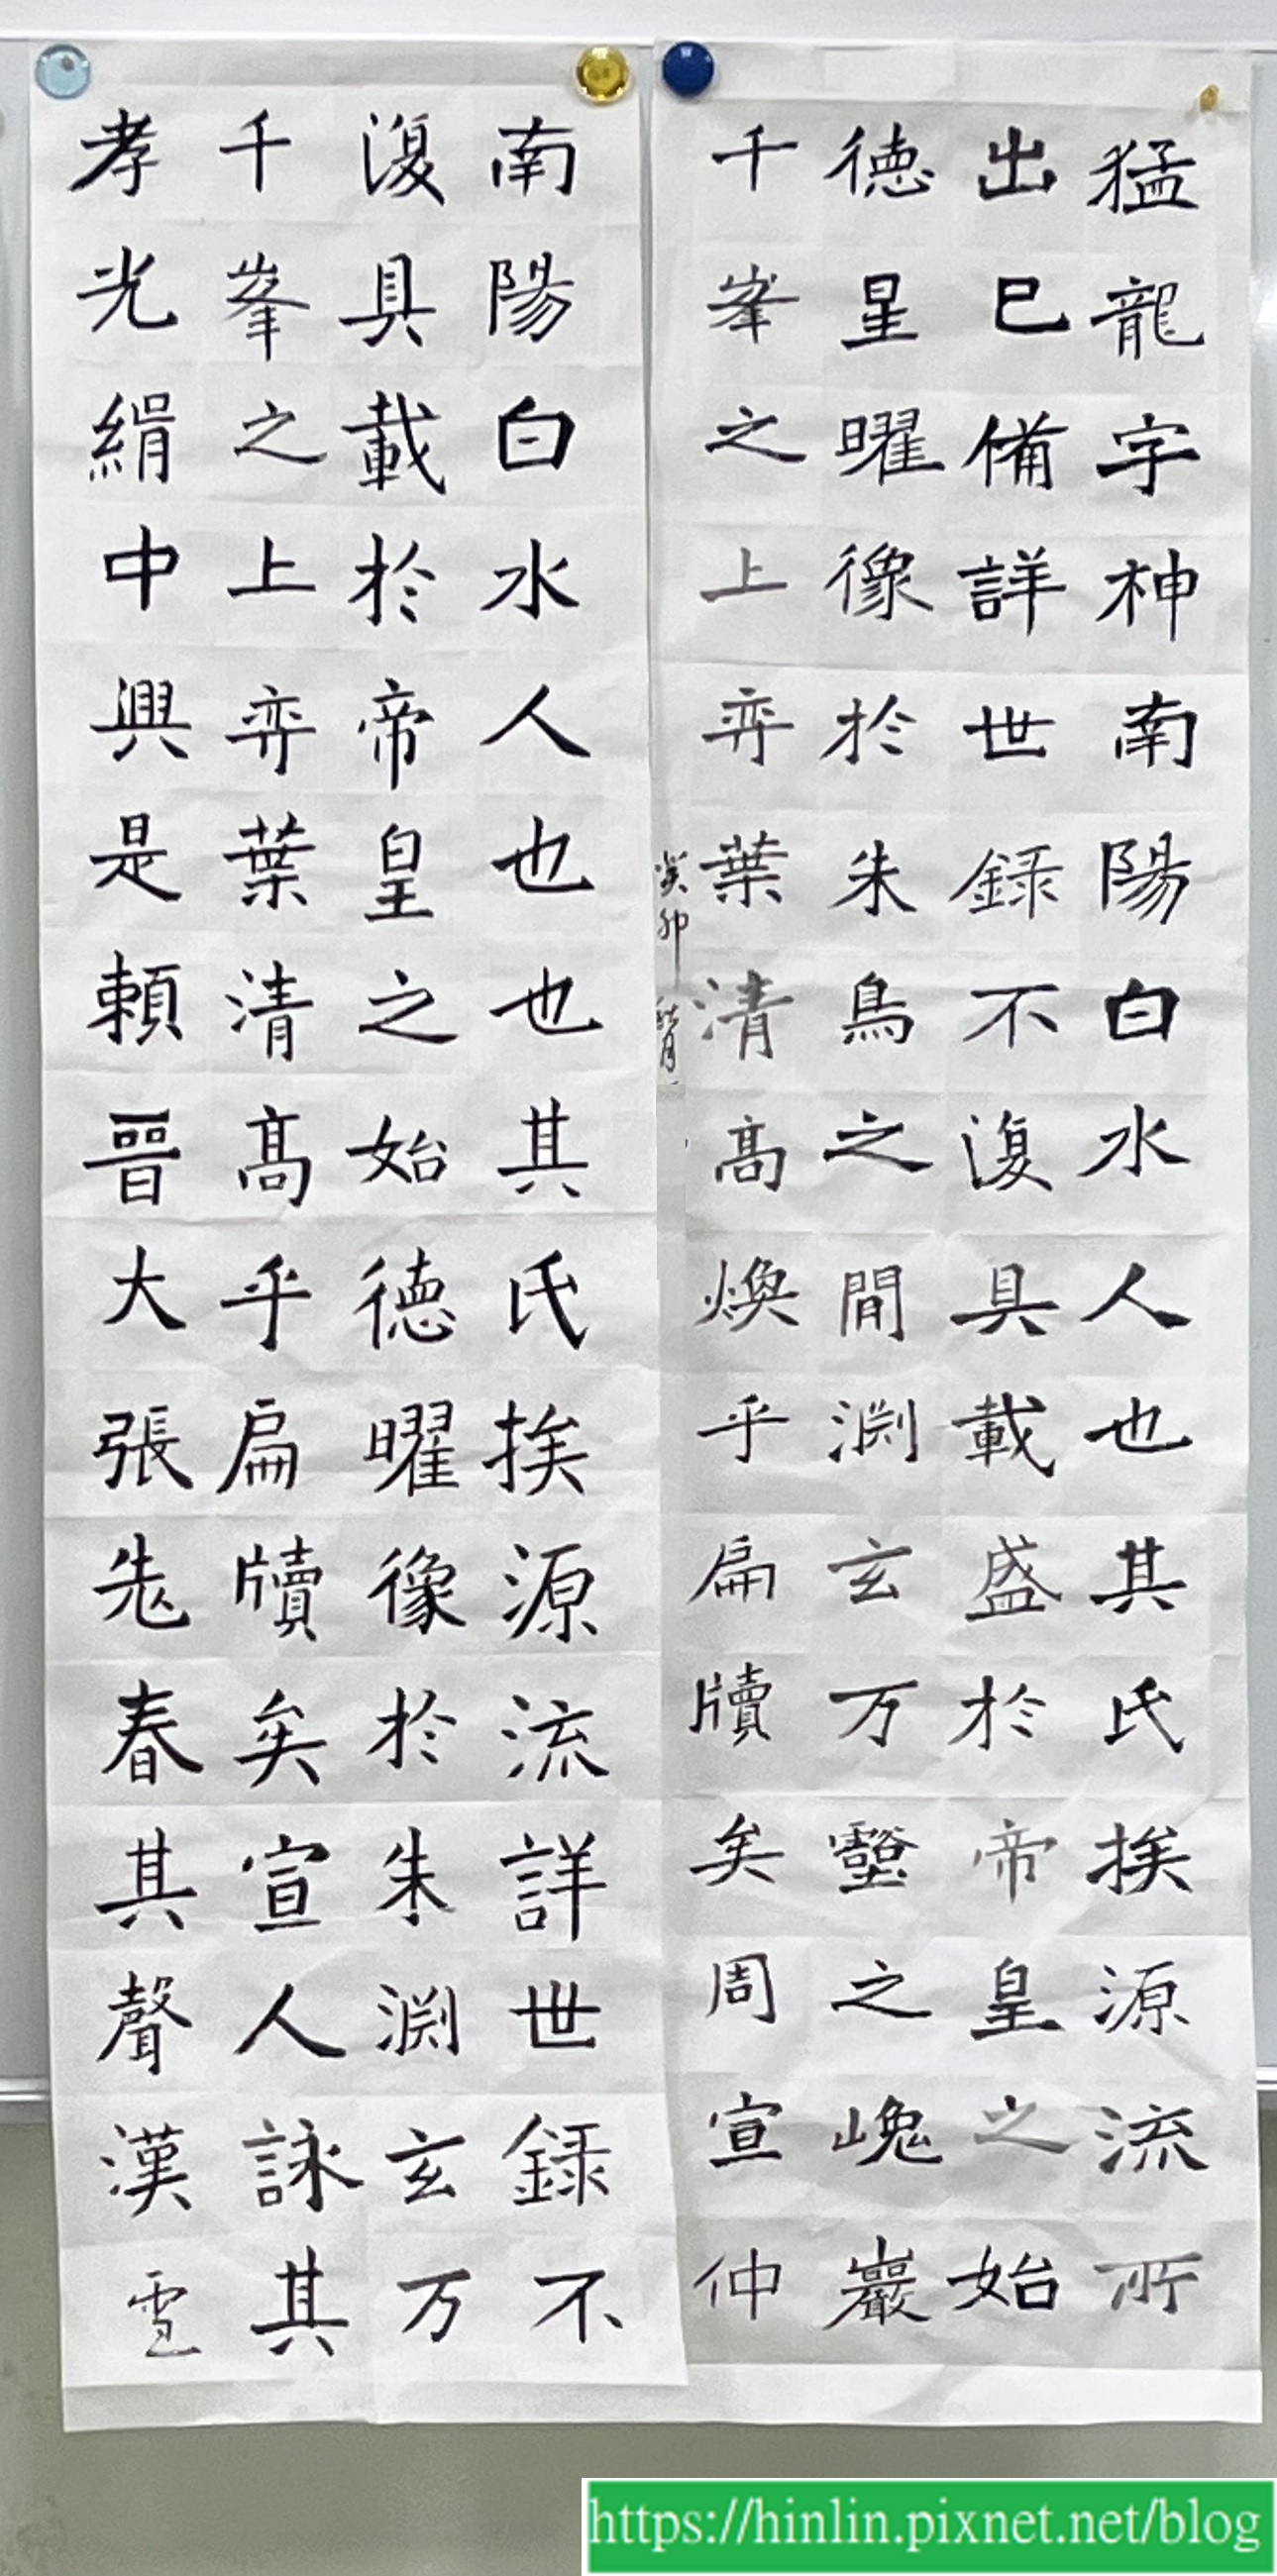 猛龍字神南陽白水人也其氏挨源流所
出已備詳世録不復具載盛於帝皇之始
德星曜像於朱鳥之間淵玄万壑之峗巖
千峯之上弈葉清高煥乎扁牘矣周宣仲
癸卯
南陽白水人也也其氏挨源流詳世録不
復具載於帝皇之始德曜像於朱淵玄万
千峯之上弈葉清高乎扁牘矣宣人詠其
孝光絹中興是賴晉大張老春其聲漢
https://hinlin.pixnet.net/blog